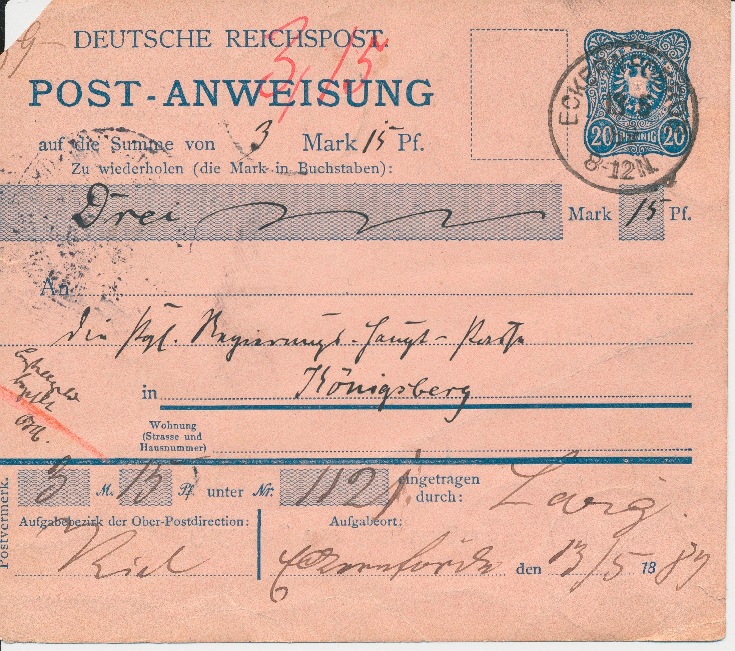 DEUTSCHE REICHSPOST.
3,15
POST-ANWEISUNG
ECKERNFÖRDE
20 PFENNIG 20
8-12N.
auf die Summe von 3 Mark 15 Pf.
Zu wiederholen (die Mark in Buchstaben):
Drei Mark 15 Pf.
An
die Kgl. Regierungs-Haupt-Kasse
in Königsberg
Wohnung
(Strasse und
Hausnummer)
Postvermerk.
3 M. 15 Pf. unter Nr. 112 eingetragen
durch:
Aufgabebezirk der Ober-Postdirection: Aufgabeort:
Kiel Eckernförde den 13/5 1889